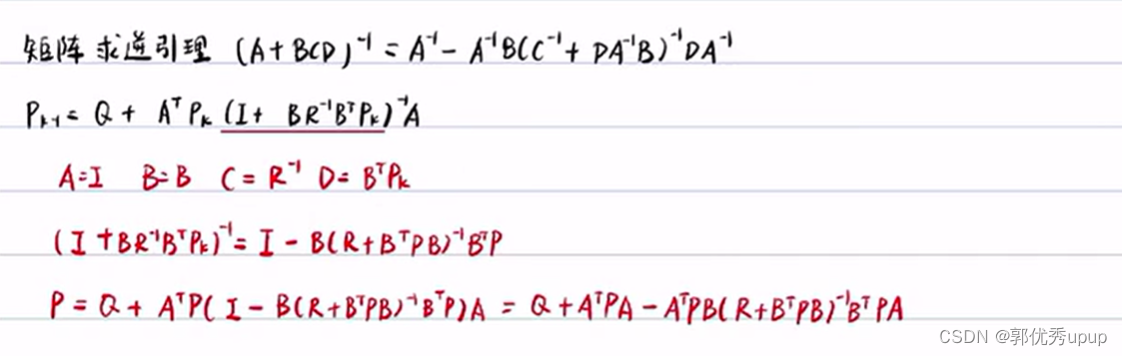 矩阵求逆引理 (A+BCD)⁻¹ = A⁻¹ - A⁻¹B(C⁻¹ + DA⁻¹B)⁻¹DA⁻¹
Pₖ₋₁ = Q + AᵀPₖ (I + BR⁻¹BᵀPₖ)⁻¹A
A=I B=B C=R⁻¹ D=BᵀPₖ
(I+BR⁻¹BᵀPₖ)⁻¹ = I - B(R+BᵀPB)⁻¹BᵀP
P = Q + AᵀP(I - B(R+BᵀPB)⁻¹BᵀP)A = Q + AᵀPA - AᵀPB(R+BᵀPB)⁻¹BᵀPA
CSDN @郭优秀upup